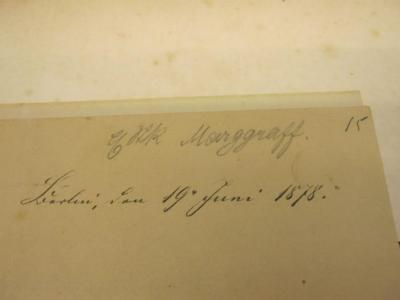 15
Marggraff.
Berlin, den 19ᵗ Juni 1878.